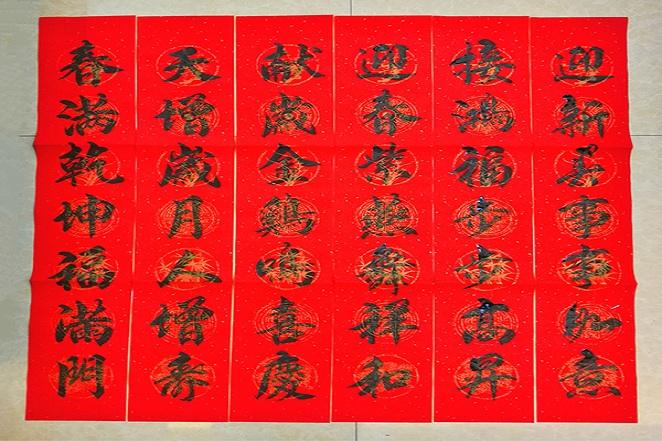 迎新春事事如意
接鴻福步步高升
迎春紫燕舞祥和
献歲金鷄鳴喜慶
天增歲月人增寿
春滿乾坤福滿門